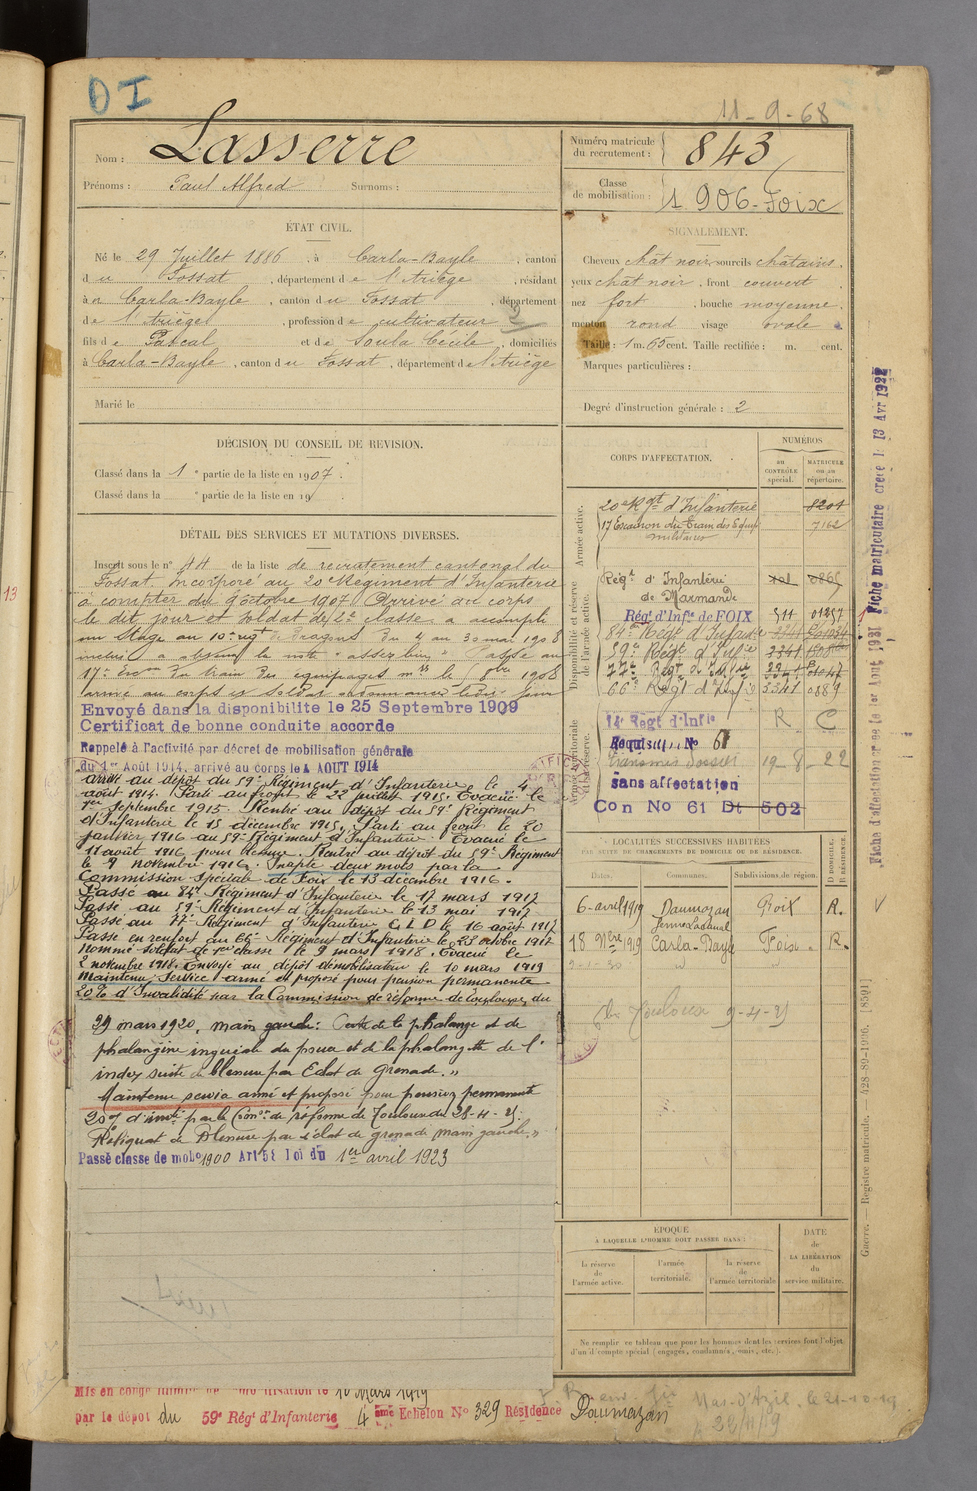 DI
11-9-68
Nom : Lasserre
Prénoms : Paul Alfred Surnoms :
Numéro matricule du recrutement : 843
Classe de mobilisation : 1906-Foix
ÉTAT CIVIL.
Né le 29 Juillet 1886, à Carla-Bayle, canton
du Fossat, département de l'Ariège, résidant
à Carla-Bayle, canton du Fossat, département
de l'Ariège, profession de cultivateur
fils de Pascal et de Soula Cécile, domiciliés
à Carla-Bayle, canton du Fossat, département de l'Ariège
Marié le
SIGNALEMENT.
Cheveux chât noir sourcils châtains,
yeux chât noir, front couvert
nez fort, bouche moyenne
menton rond visage ovale.
Taille : 1 m. 63 cent. Taille rectifiée : m. cent.
Marques particulières :
Degré d'instruction générale : 2
DÉCISION DU CONSEIL DE REVISION.
Classé dans la 1e partie de la liste en 1907.
Classé dans la e partie de la liste en 19
DÉTAIL DES SERVICES ET MUTATIONS DIVERSES.
Inscrit sous le n° 44 de la liste de recrutement cantonal du
Fossat, Incorporé au 20e Régiment d'Infanterie
à compter du 9 octobre 1907 Arrivé au corps
le dit jour et soldat de 2e classe a accompli
un stage au 10e régt de Dragons Du 4 au 30 mai 1908
inclus a obtenu la note "assez bien" Passé au
17e escon du train des équipages mres le 1908
arrivé au corps et soldat ordonnance ledit jour
Envoyé dans la disponibilite le 25 Septembre 1909
Certificat de bonne conduite accorde
Rappelé à l'activité par décret de mobilisation générale
du 1er Août 1914, arrivé au corps le 4 AOUT 1914
arrivé au dépôt du 59e Régiment d'Infanterie le 4
août 1914. Parti au front le 22 juillet 1915. Evacué le
1er Septembre 1915. Rentré au dépôt du 59e Régiment
d'Infanterie le 15 décembre 1915. Parti au front le 20
janvier 1916 au 59e Régiment d'Infanterie. Evacué le
11 août 1916 pour blessure. Rentré au dépôt du 59e Régiment
le 9 novembre 1916. Inapte deux mois par la
Commission Spéciale de Foix le 13 décembre 1916.
Passé au 84e Régiment d'Infanterie le 17 mars 1917
Passé au 59e Régiment d'Infanterie le 13 mai 1917.
Passé au 77e Régiment d'Infanterie C I D le 16 août 1917
Passé en renfort au 66e Régiment d'Infanterie le 23 octobre 1917
Nommé soldat de 1re classe le 9 mars 1918. Evacué le
2 novembre 1918. Envoyé au dépôt démobilisateur le 10 mars 1919
Maintenu Service armé et proposé pour pension permanente
20% d'Invalidité par la Commission de réforme de Toulouse, du
29 mars 1920, main gauche : Perte de la phalange et de
phalangine inguéale du pouce et de la phalangette de l'
index suite de blessure par Eclat de Grenade. "
Maintenu service armé et proposé pour pension permanente
20% d'invté par la Comon de réforme de Toulouse du 28-4-21.
Reliquat de Blessure par éclat de grenade main gauche "
Passé classe de mobon 1900 Art 58 loi du 1er avril 1923
CORPS D'AFFECTATION.
NUMÉROS
au CONTRÔLE spécial.
MATRICULE ou au répertoire.
Armée active.
20e Rgt d'Infanterie 8204
17 Escadron du Train des Equip militaires 7162
Disponibilité et réserve de l'armée active.
Régt d'Infanterie de Marmande
Régt d'Infie de FOIX 511 01257
84e Régt d'Infanterie
59e Régt d'Infie
77e Régt d'Infie
66e Régt d'Infie 3341 0889
Armée territoriale et sa réserve.
14e Régt d'Infie R C
Réquisition No 61
Transmis Dossier 19-8-22
sans affectation
Con No 61 Dt 502
Fiche matriculaire créée le 13 Avr 1922
LOCALITÉS SUCCESSIVES HABITÉES
PAR SUITE DE CHANGEMENTS DE DOMICILE OU DE RÉSIDENCE.
Dates. Communes. Subdivisions de région. D DOMICILE. R RÉSIDENCE.
6-avril 1919 Daumazan Foix R.
18 9bre 1919 Carla-Bayle Foix R.
Toulouse 9-4-21
ÉPOQUE
A LAQUELLE L'HOMME DOIT PASSER DANS :
DATE de LA LIBÉRATION du service militaire.
la réserve de l'armée active.
l'armée territoriale.
la réserve de l'armée territoriale
Ne remplir ce tableau que pour les hommes dont les services font l'objet
d'un décompte spécial (engagés, condamnés, omis, etc.).
Guerre. — Registre matricule. — 428-89-1906. [8591]
Mis en congé illimité de démobilisation le 10 Mars 1919
par le dépot du 59e Régt d'Infanterie 4 ème Echelon No 329 Résidence Daumazan
Mas-d'Azil, le 21-10-19
13